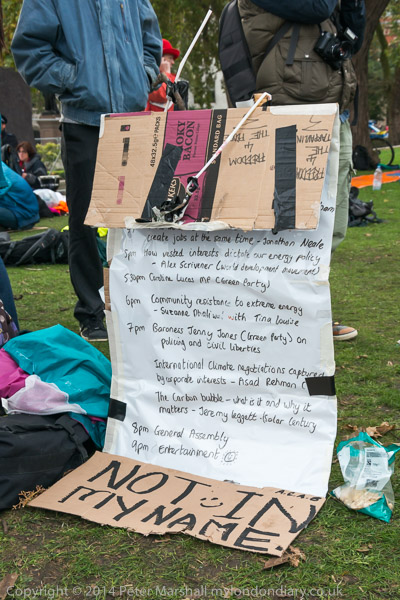 48x32.5g PACKS
OKY
BACON
STANDARD BAG
FREEDOM
IN THE
FREEDOM
IN THE
create jobs at the same time - Jonathan Neale
5pm How vested interests dictate our energy policy
- Alex Scrivener (World development movement)
5:30pm Caroline Lucas MP (Green Party)
6pm Community resistance to extreme energy
- Suzanne Dhaliwal with Tina Louise
7pm Baroness Jenny Jones (Green Party) on
policing and civil liberties
International climate negotiations captured
by corporate interests - Asad Rehman
The Carbon bubble - what is it and why it
matters - Jeremy Leggett - Solar Century
8pm General Assembly
9pm Entertainment
NOT IN
MY NAME.
Copyright © 2014 Peter Marshall mylondondiary.co.uk